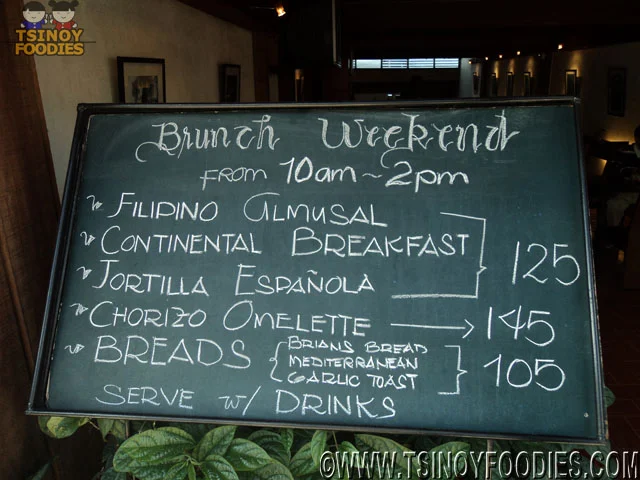 TSINOY
FOODIES
Brunch Weekend
FROM 10am ~ 2pm
FILIPINO ALMUSAL
CONTINENTAL BREAKFAST
TORTILLA ESPAÑOLA
125
CHORIZO OMELETTE → 145
BREADS
BRIANS BREAD
MEDITERRANEAN
GARLIC TOAST
105
SERVE W/ DRINKS
©WWW.TSINOYFOODIES.COM